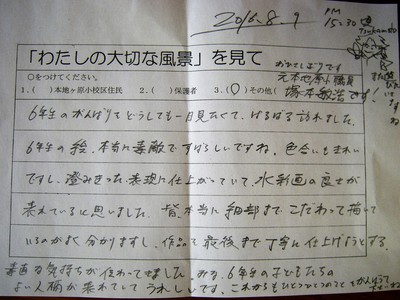 2016.8.9
PM
15:30
「わたしの大切な風景」を見て
○をつけてください。
1.( )本地ヶ原小校区住民 2.( )保護者 3.(○)その他(
おひさしぶりです
元本地原小職員
塚本敏浩です!
6年生のがんばりをどうしても一目見たくて、はるばる訪れました。
6年生の絵、本当に素敵ですばらしいですね。色合いもきれい
ですし、澄みきった表現に仕上がっていて、水彩画の良さが
表れていると思いました。皆、本当に細部までこだわって描いて
いるのがよく分かりますし、作品を最後まで丁寧に仕上げようとする
素直な気持ちが伝わってきました。みな、6年生の子どもたちの
よい人柄が表れていてうれしいです。これからもひとつひとつのことをがんばって